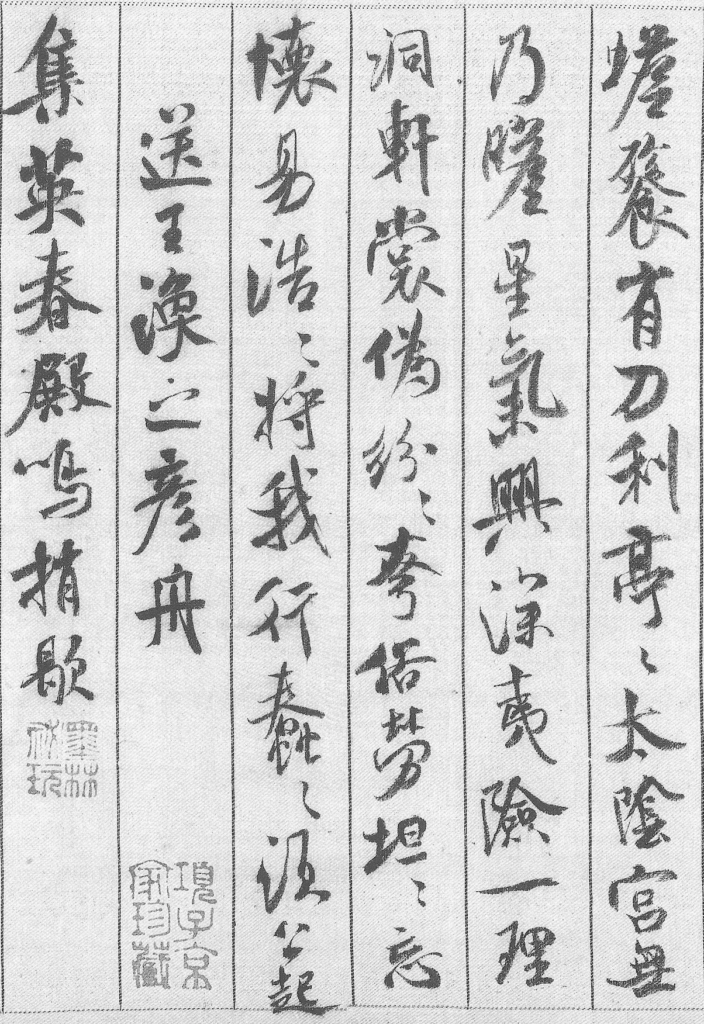 蟾餮有刀利亭〻太陰宮無
乃瞻星氣興深夷險一理
洞軒裳偽紛〻夸俗勞坦〻忘
懷易浩〻將我行蠢〻須公起
送王渙之彥舟
集英春殿鳴捎歇
項子京家珍藏
墨林秘玩